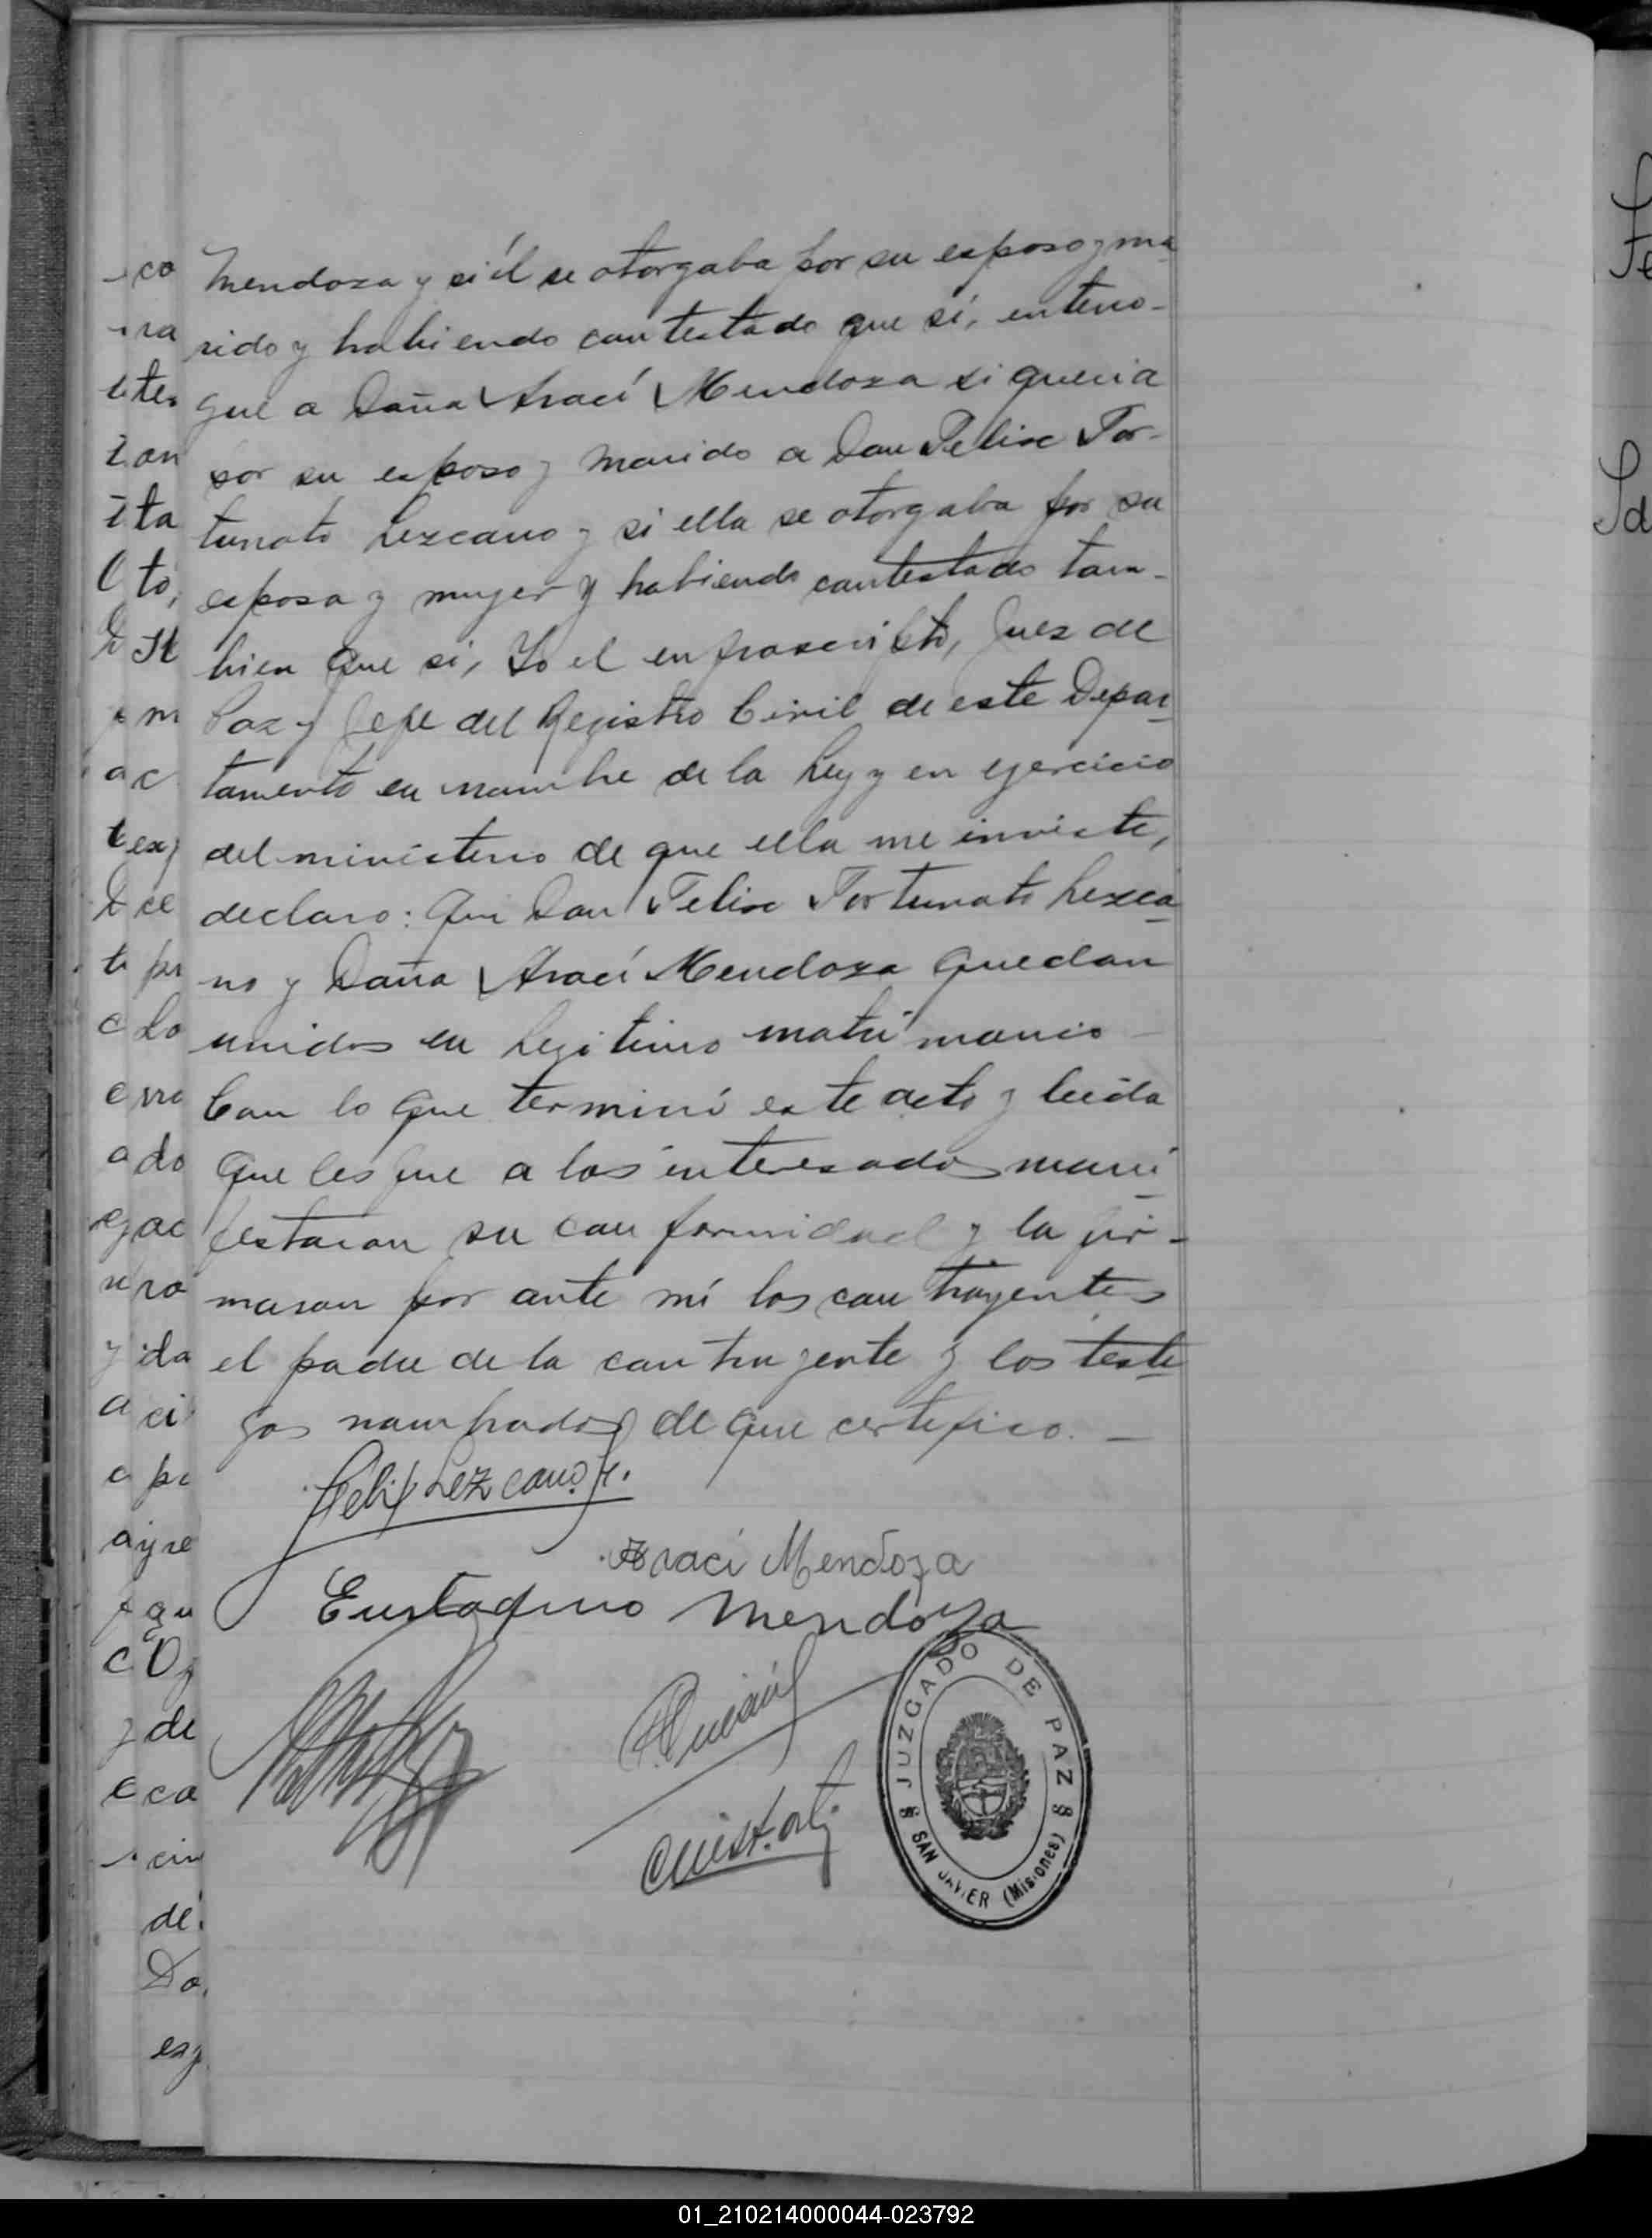 Mendoza y si él se otorgaba por su esposo y ma
rido y habiendo contestado que sí, interro-
gué a Doña Araci Mendoza si queria
por su esposo y marido a Don Felix For-
tunato Lezcano y si ella se otorgaba por su
esposa y mujer y habiendo contestado tam-
bien que si, Yo el enfrascripto, Juez de
Paz y Jefe del Registro Civil de este Depar-
tamento en nombre de la Ley y en ejercicio
del ministerio de que ella me inviste,
declaro: Que Don Felix Fortunato Lezca-
no y Doña Araci Mendoza quedan
unidos en Legitimo matrimonio
Con lo que terminó este acto y leida
que les fue a los interesados mani-
festaron su conformidad y la fir-
maron por ante mí los contrayentes
el padre de la contrayente y los testi-
gos nombrados de que certifico. —
Felix Lezcano
Araci Mendoza
Mendoza
JUZGADO DE PAZ
SAN JAVIER (Misiones)
01_210214000044-023792